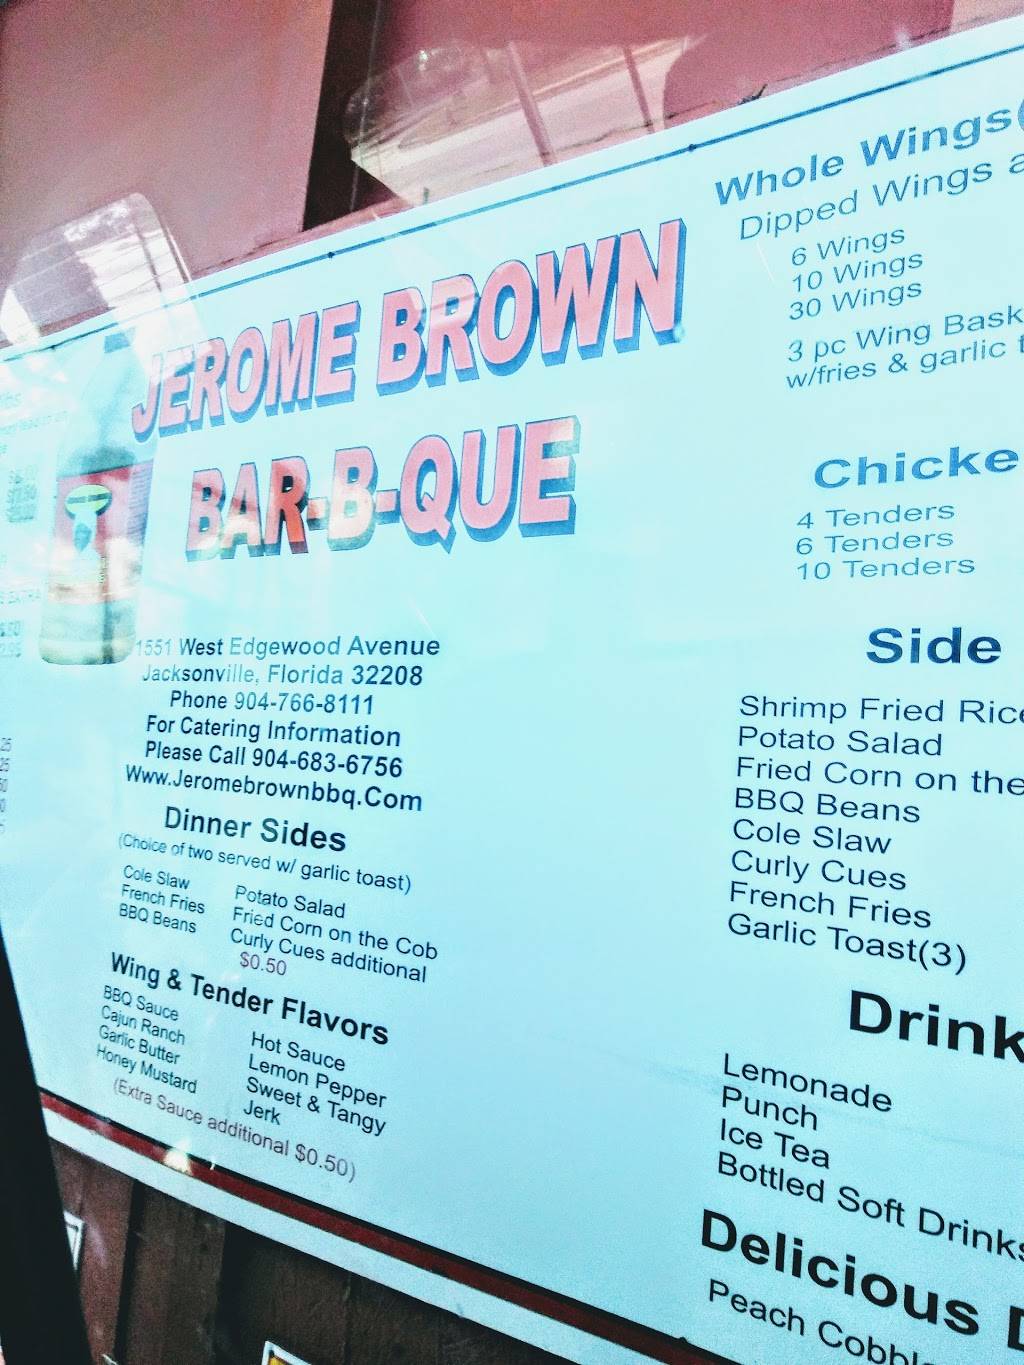 JEROME BROWN
BAR-B-QUE
1551 West Edgewood Avenue
Jacksonville, Florida 32208
Phone 904-766-8111
For Catering Information
Please Call 904-683-6756
Www.Jeromebrownbbq.Com
Dinner Sides
(Choice of two served w/ garlic toast)
Cole Slaw
French Fries
BBQ Beans
Potato Salad
Fried Corn on the Cob
Curly Cues additional
$0.50
Wing & Tender Flavors
BBQ Sauce
Cajun Ranch
Garlic Butter
Honey Mustard
Hot Sauce
Lemon Pepper
Sweet & Tangy
Jerk
(Extra Sauce additional $0.50)
Whole Wings(
Dipped Wings a
6 Wings
10 Wings
30 Wings
3 pc Wing Bask
w/fries & garlic t
Chicke
4 Tenders
6 Tenders
10 Tenders
Side
Shrimp Fried Rice
Potato Salad
Fried Corn on the
BBQ Beans
Cole Slaw
Curly Cues
French Fries
Garlic Toast(3)
Drink
Lemonade
Punch
Ice Tea
Bottled Soft Drinks
Delicious D
Peach Cobbl